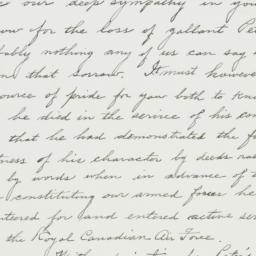 our deep sympathy in you
ow for the loss of gallant Pe
bably nothing any of us can say
that sorrow. It must however
ource of pride for you both to kn
he died in the service of his co
that he had demonstrated the f
tness of his character by deeds ra
by words when in advance of
constituting our armed forces he
ntered for and entered active ser
the Royal Canadian Air Force.